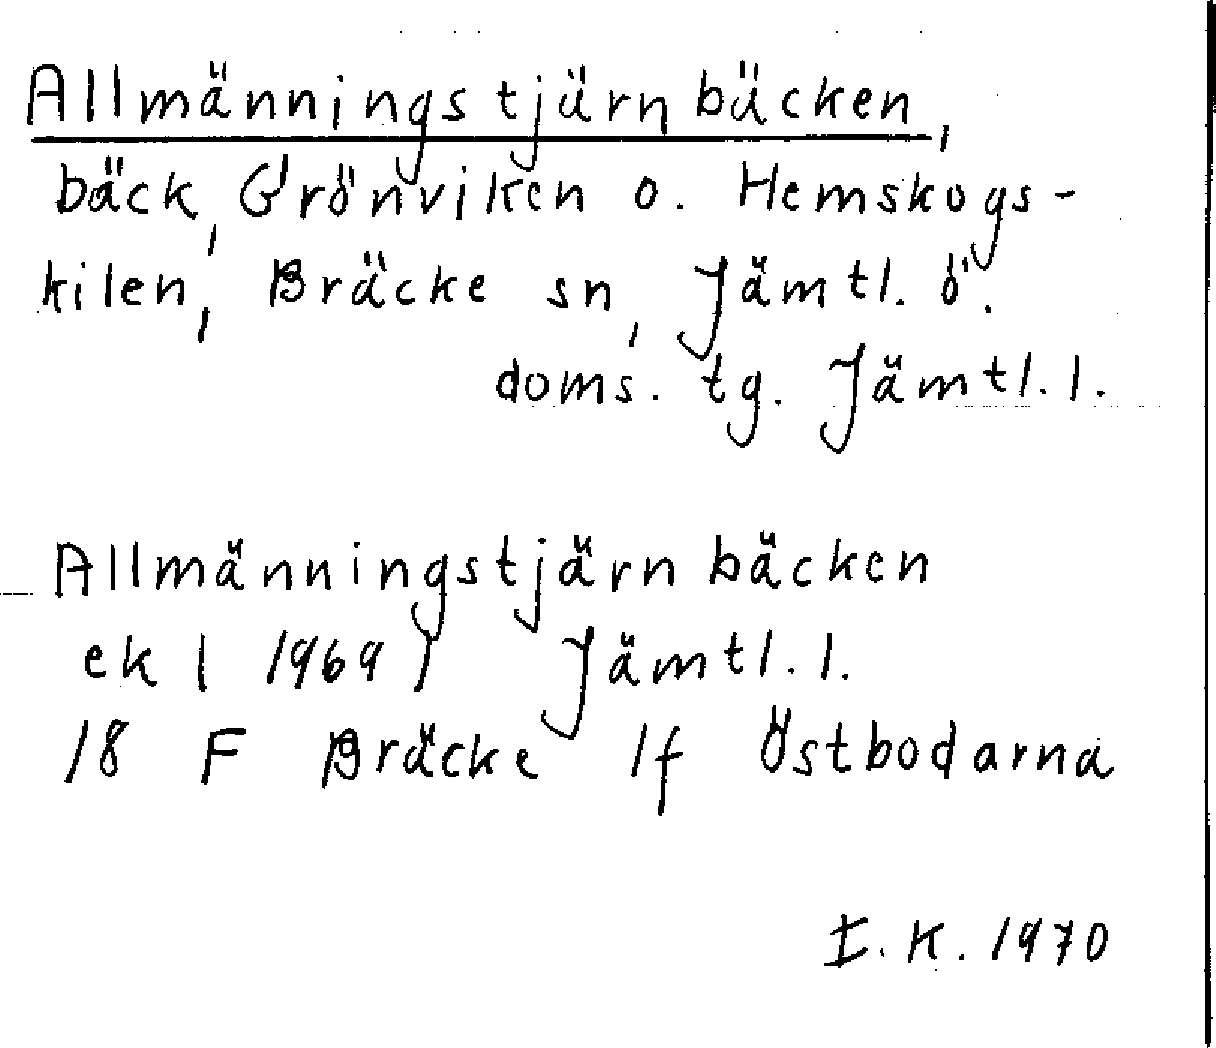 Allmänningstjärnbäcken,
bäck, Grönviken o. Hemskogs-
kilen, Bräcke sn, Jämtl. ö.
doms. tg. Jämtl. l.
Allmänningstjärnbäcken
ek ( 1969 ) Jämtl. l.
18 F Bräcke 1f Östbodarna
I. K. 1970